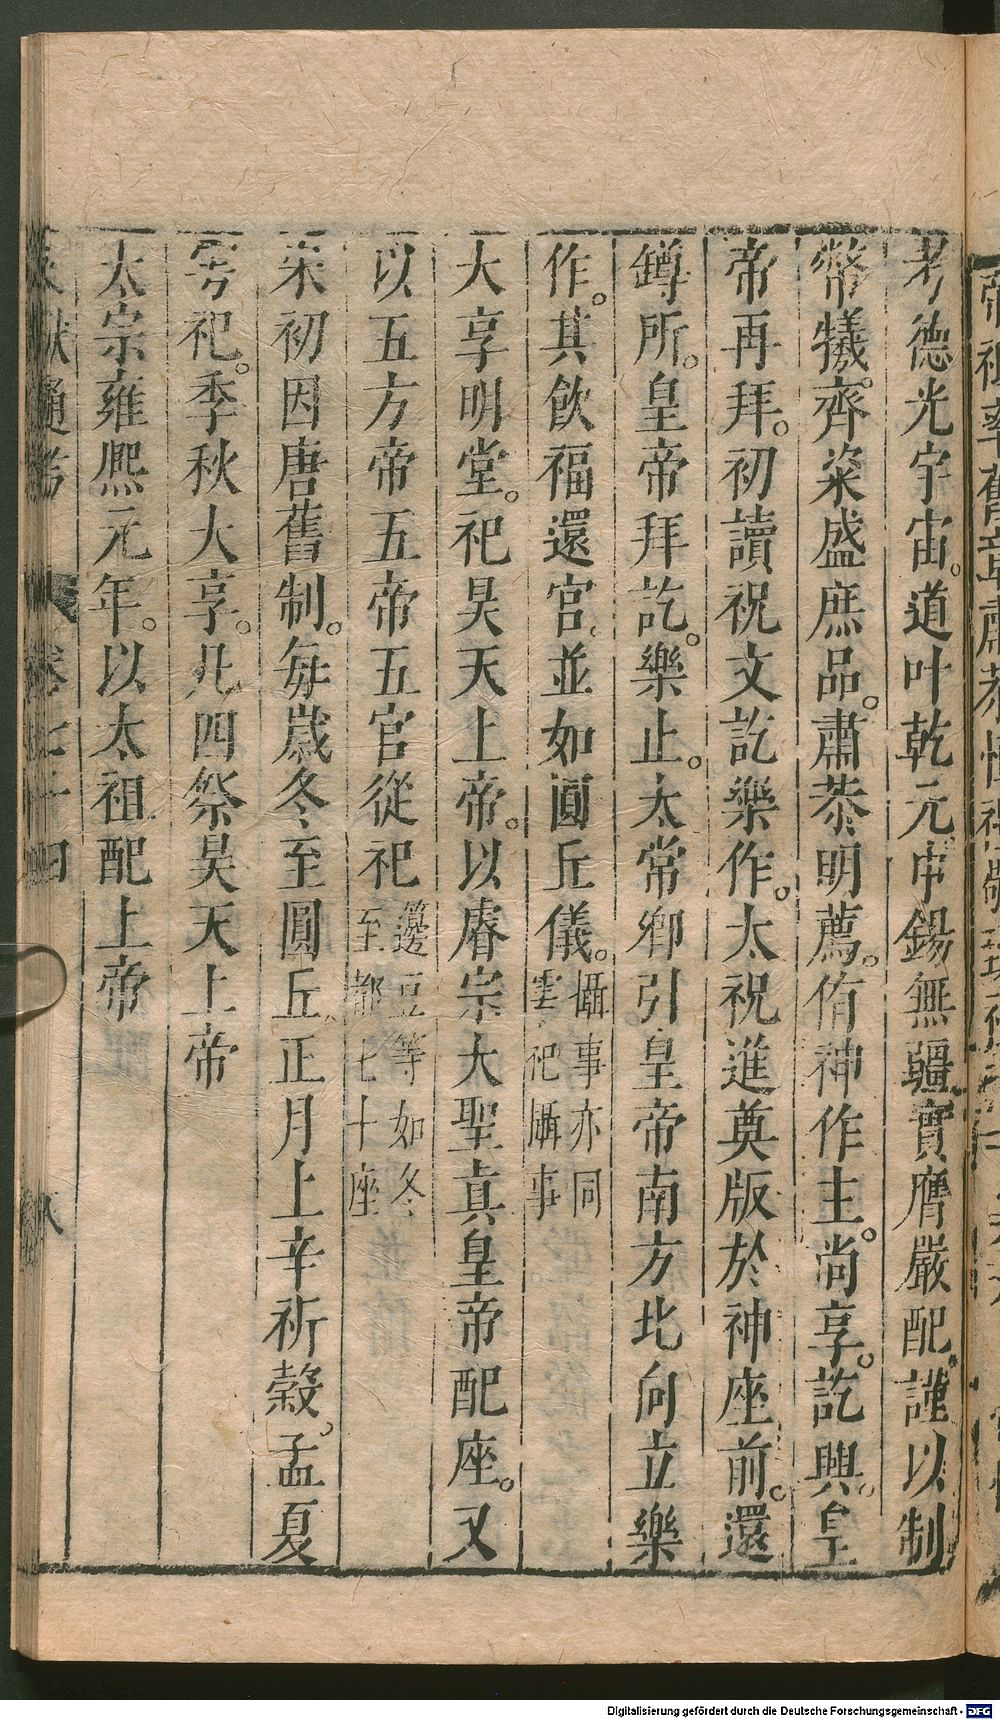 考德光宇宙。道叶乾元。申錫無疆實膺嚴配。謹以制
幣犧。齊粢盛庶品。肅恭明薦。侑神作主。尚享。訖興。皇
帝再拜。初讀祝文訖樂作。太祝進奠版於神座前。還
罇所。皇帝拜訖。樂止。太常卿引皇帝南方北向立樂
作。其飲福還宮。並如圓丘儀。攝事亦同
雩祀攝事
大享明堂。祀昊天上帝。以睿宗大聖真皇帝配座。又
以五方帝五帝五官從祀籩豆等如冬
至都七十座
宋初因唐舊制。每歲冬至圓丘正月上辛祈穀。孟夏
雩祀。季秋大享。凡四祭昊天上帝
太宗雍熙元年。以太祖配上帝
獻通考 卷七十四 八
Digitalisierung gefördert durch die Deutsche Forschungsgemeinschaft - DFG